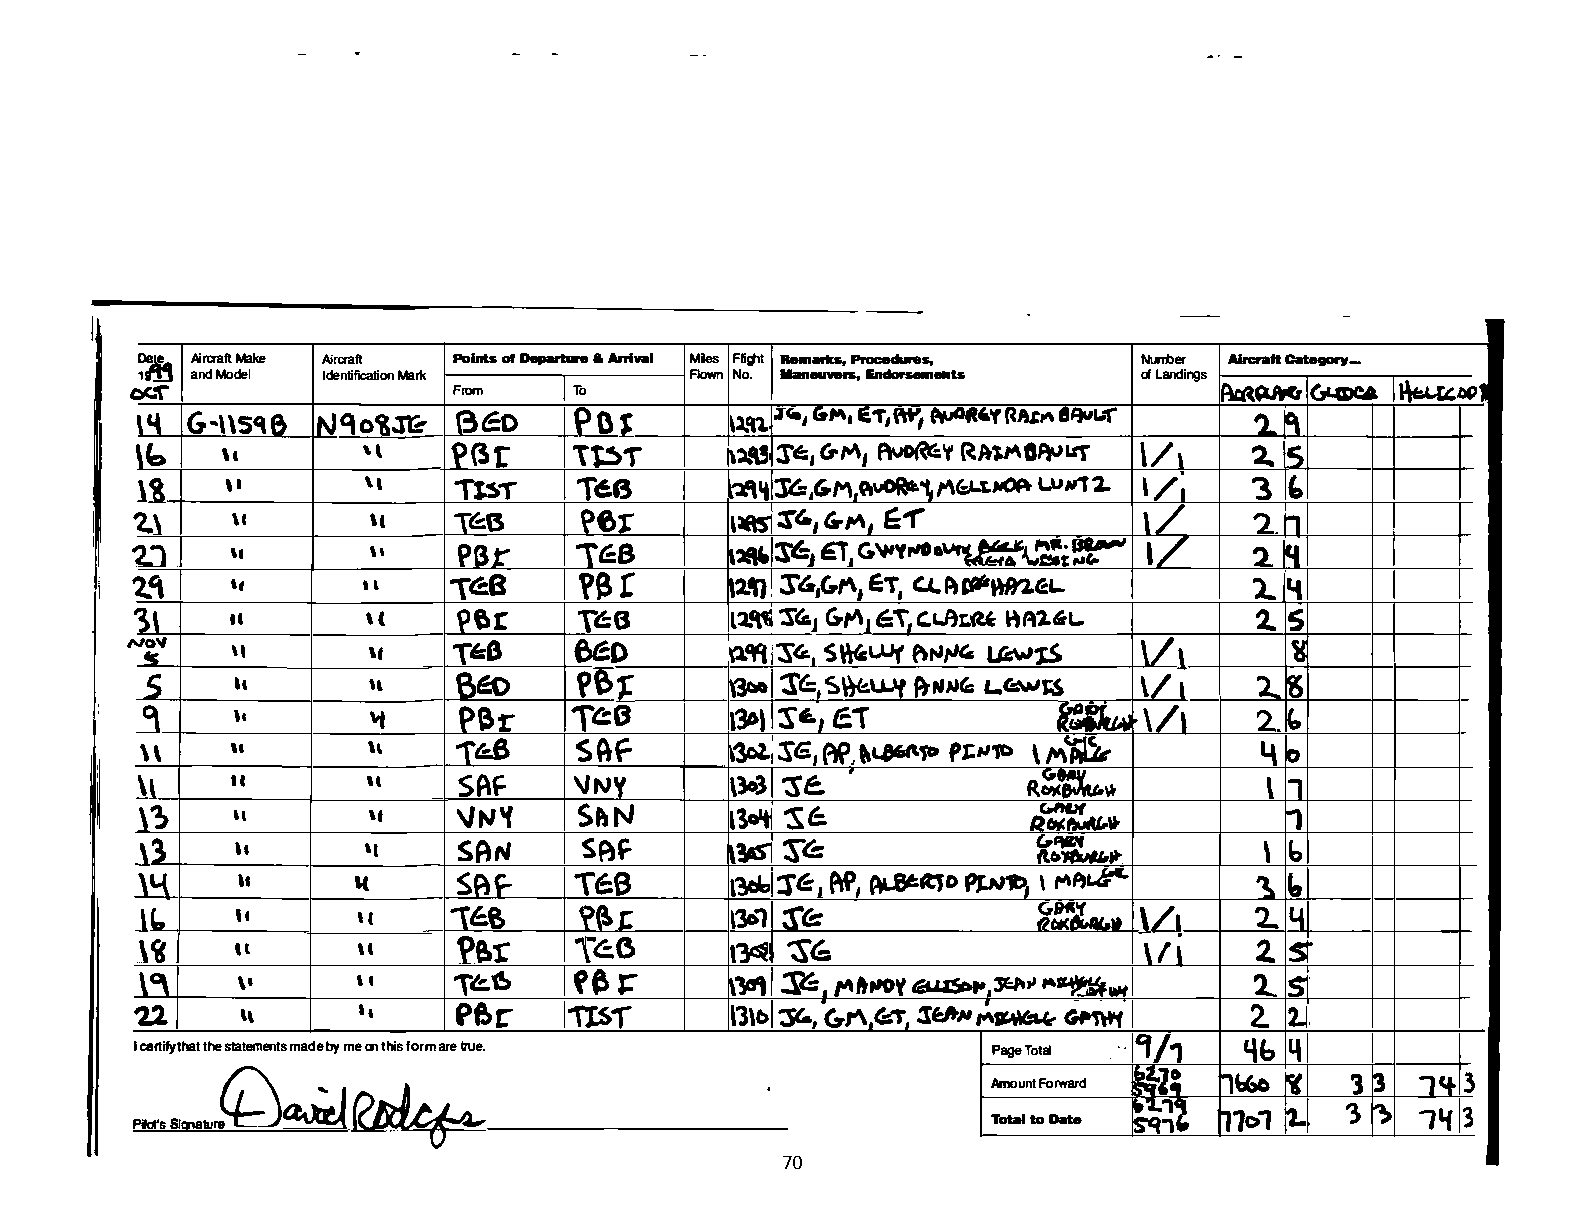 Date Aircraft Make Aircraft Points of Departure & Arrival Miles Flight Remarks, Procedures, Number Aircraft Category—
1999 and Model Identification Mark From To Flown No. Maneuvers, Endorsements of Landings
OCT HELICOP
14 G-1159B N908JE BED PBI 1292 JE, GM, ET, AP, AUDREY RAIMBAULT 2 9
16 " " PBI TIST 1293 JE, GM, AUDREY RAIMBAULT 1/1 2 5
18 " " TIST TEB 1294 JE, GM, AUDREY, MELINDA LUNTZ 1/1 3 6
21 " " TEB PBI 1295 JE, GM, ET 1/ 2 7
27 " " PBI TEB 1296 JE, ET, 1/ 2 4
29 " " TEB PBI 1297 JE, GM, ET, CLAIRE HAZEL 2 4
31 " " PBI TEB 1298 JE, GM, ET, CLAIRE HAZEL 2 5
NOV
5 " " TEB BED 1299 JE, SHELLY ANNE LEWIS 1/1 8
5 " " BED PBI 1300 JE, SHELLY ANNE LEWIS 1/1 2 8
9 " " PBI TEB 1301 JE, ET GARY ROXBURGH 1/1 2 6
11 " " TEB SAF 1302 JE, AP, ALBERTO PINTO 1 MALE 4 0
11 " " SAF VNY 1303 JE GARY ROXBURGH 1 7
13 " " VNY SAN 1304 JE GARY ROXBURGH 7
13 " " SAN SAF 1305 JE GARY ROXBURGH 1 6
14 " " SAF TEB 1306 JE, AP, ALBERTO PINTO, 1 MALE 3 6
16 " " TEB PBI 1307 JE GARY ROXBURGH 1/1 2 4
18 " " PBI TEB 1308 JE 1/1 2 5
19 " " TEB PBI 1309 JE, MANDY ELLISON, JEAN 2 5
22 " " PBI TIST 1310 JE, GM, ET, JEAN MICHELE GATHY 2 2
I certify that the statements made by me on this form are true. Page Total 9/7 46 4
Amount Forward 6270 5969 7660 8 3 3 74 3
Pilot's Signature David Rodgers Total to Date 6279 5976 7707 2 3 3 74 3
70